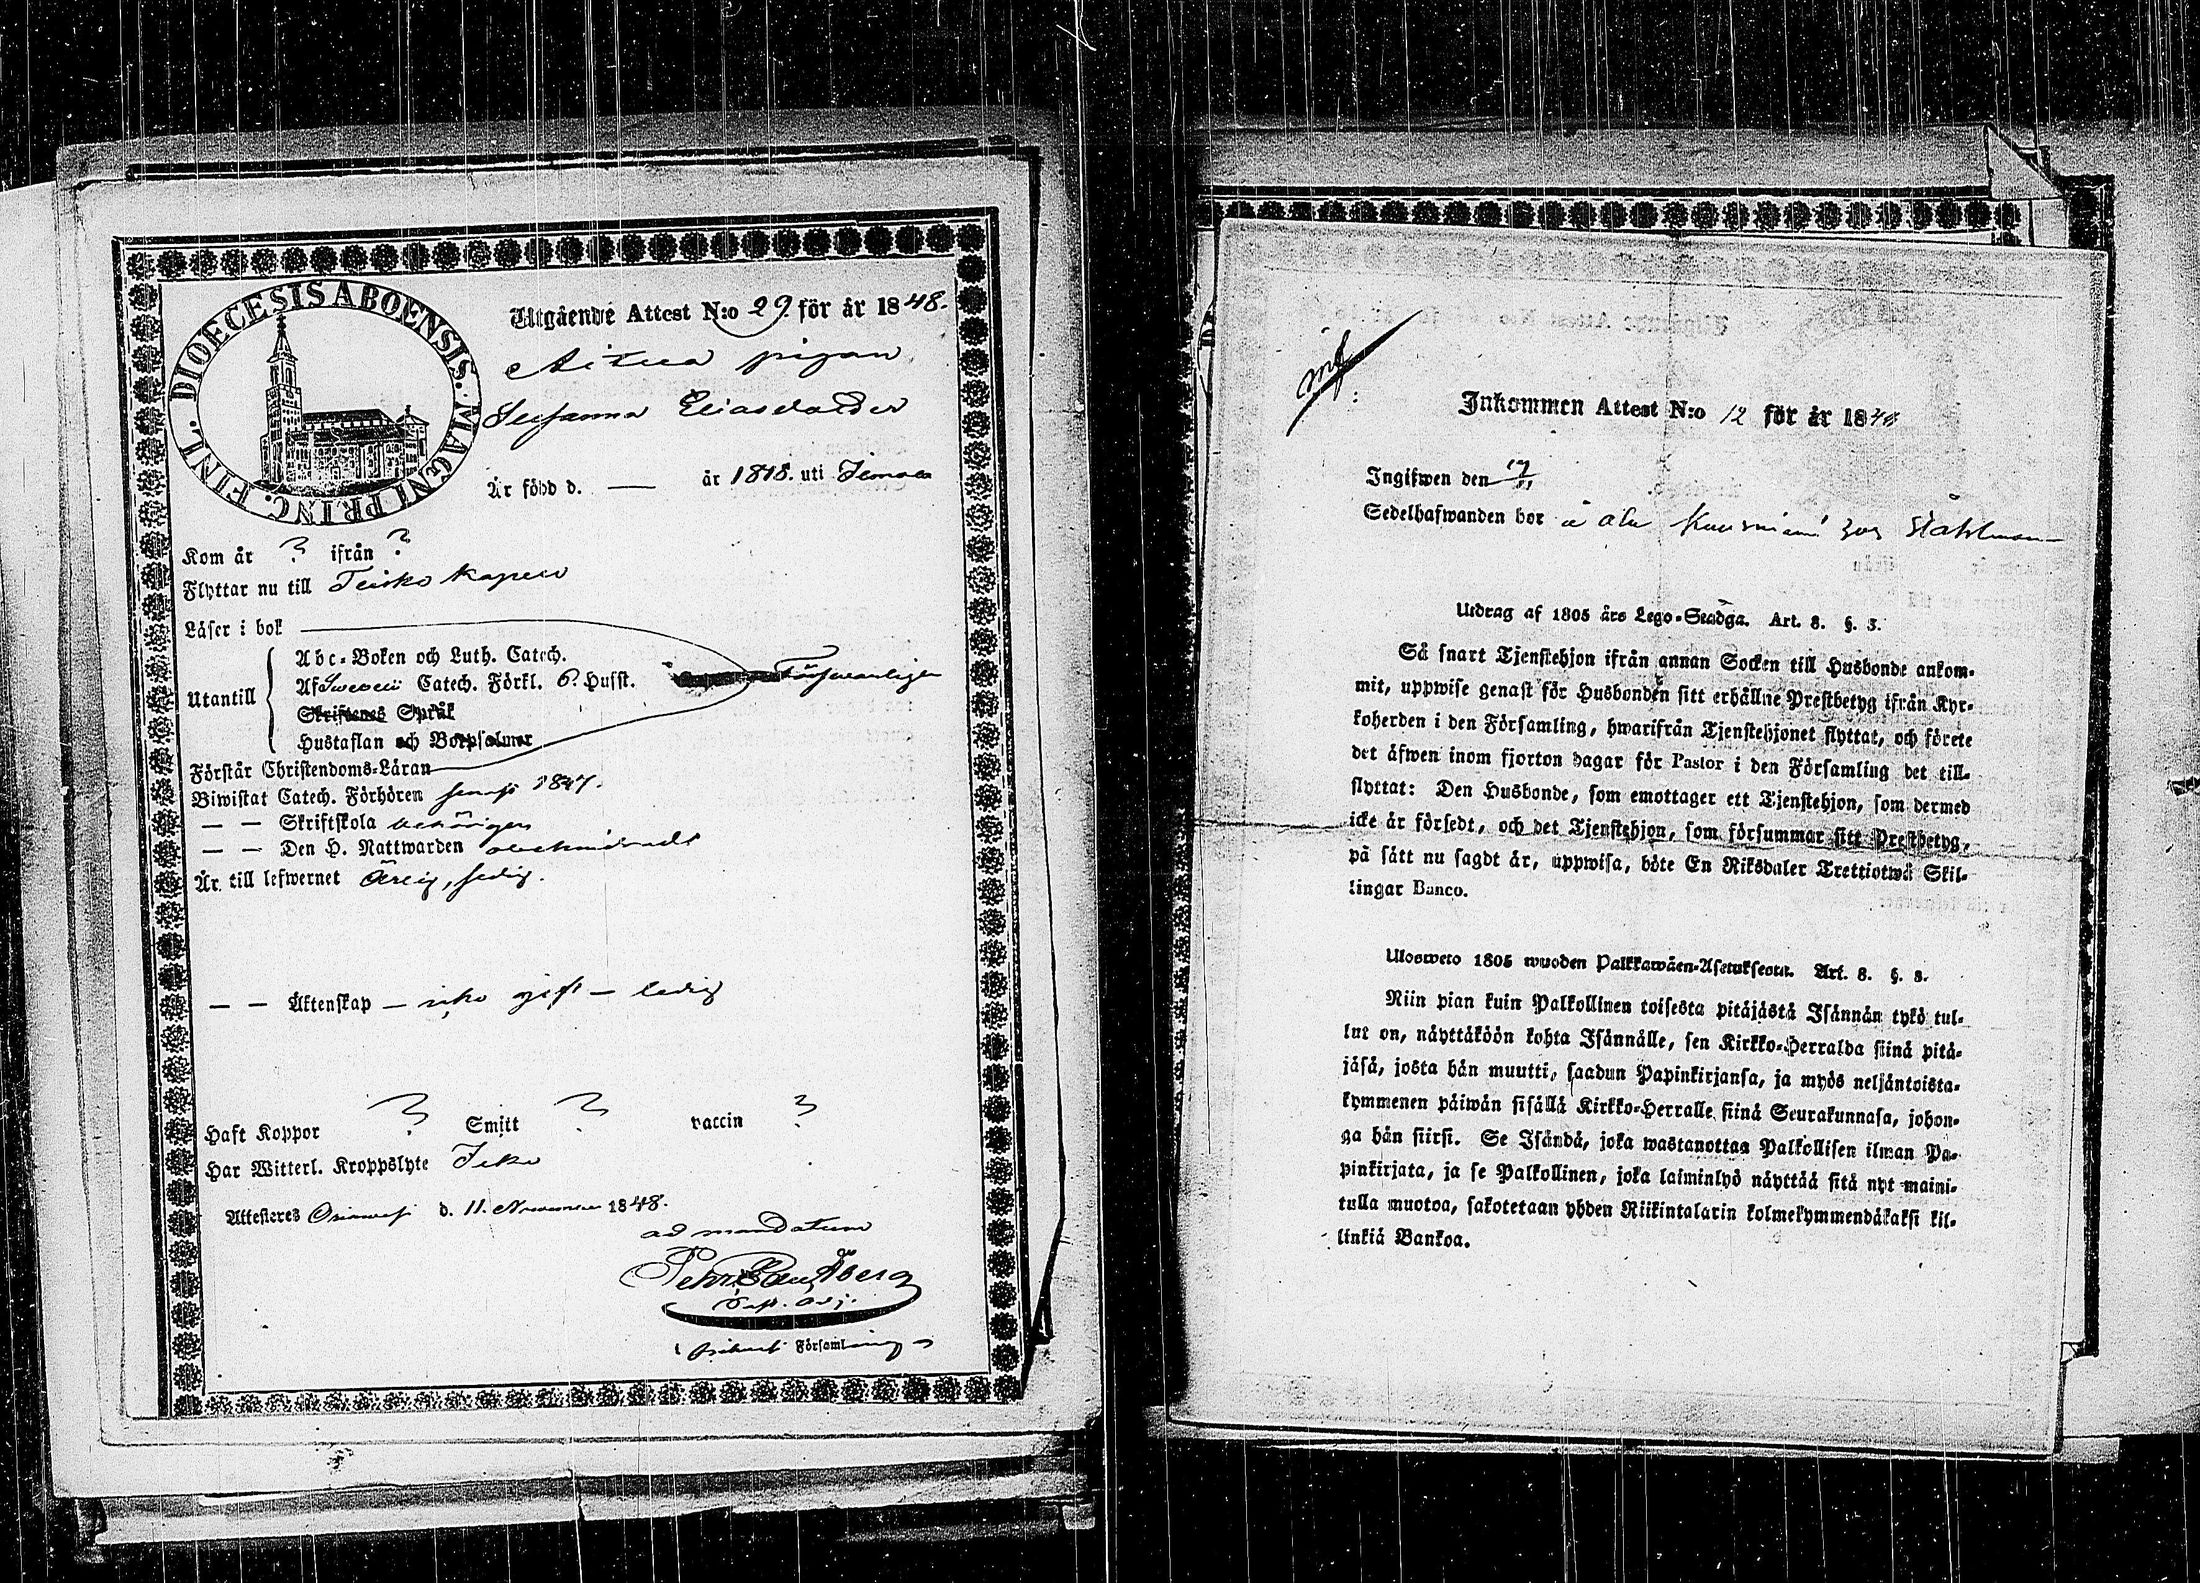 DIOECESIS ABOENSIS. MAGNI PRINC. FINL.
Utgående Attest N:o 29. för år 1848.
pigan
Eliasdotter
Är född d. — år 1818. uti
Kom år ? ifrån ?
Flyttar nu till Teisko Kapell
Läser i bok
Utantill
Abc-Boken och Luth. Catech.
Af Svebelii Catech. Förkl. 6. Husst. Försvarligen
Skriftenes Språk
Hustaflan och Botpsalmer
Förstår Christendoms-Läran
Biwistat Catech. Förhören senast 1847.
— — Skriftskola behörigen
— — Den H. Nattwarden
Är till lefwernet Ärlig, sedig.
— — Äktenskap — icke gift — ledig
Haft Koppor ? Smitt ? vaccin ?
Har Witterl. Kroppslyte Icke
Attesteres Oriwesi d. 11. November 1848.
ad mandatum
Past. Adj.
Församling
Inkommen Attest N:o 12 för år 1848
Ingifwen den 17/11
Sedelhafwanden bor å Ståhlman
Utdrag af 1805 års Lego-Stadga. Art. 8. §. 3.
Så snart Tjenstehjon ifrån annan Socken till Husbonde ankom-
mit, uppwise genast för Husbonden sitt erhållne Prestbetyg ifrån Kyr-
koherden i den Församling, hwarifrån Tjenstehjonet flyttat, och förete
det äfwen inom fjorton dagar för Pastor i den Församling det till-
flyttat: Den Husbonde, som emottager ett Tjenstehjon, som dermed
icke är försedt, och det Tjenstehjon, som försummar sitt Prestbetyg,
på sätt nu sagdt är, uppwisa, böte En Riksdaler Trettiotwå Skil-
lingar Banco.
Ulosweto 1805 wuoden Palkkawäen-Asetuksesta. Art. 8. §. 3.
Niin pian kuin Palkollinen toisesta pitäjästä Isännän tykö tul-
lut on, näyttäköön kohta Isännälle, sen Kirkko-Herralda siinä pitä-
jäsä, josta hän muutti, saadun Papinkirjansa, ja myös neljäntoista-
kymmenen päiwän sisällä Kirkko-Herralle siinä Seurakunnasa, johon-
ga hän siirsi. Se Isändä, joka wastanottaa Palkollisen ilman Pa-
pinkirjata, ja se Palkollinen, joka laiminlyö näyttää sitä nyt maini-
tulla muotoa, sakotetaan yhden Riikintalarin kolmekymmendäkaksi kil-
linkiä Bankoa.